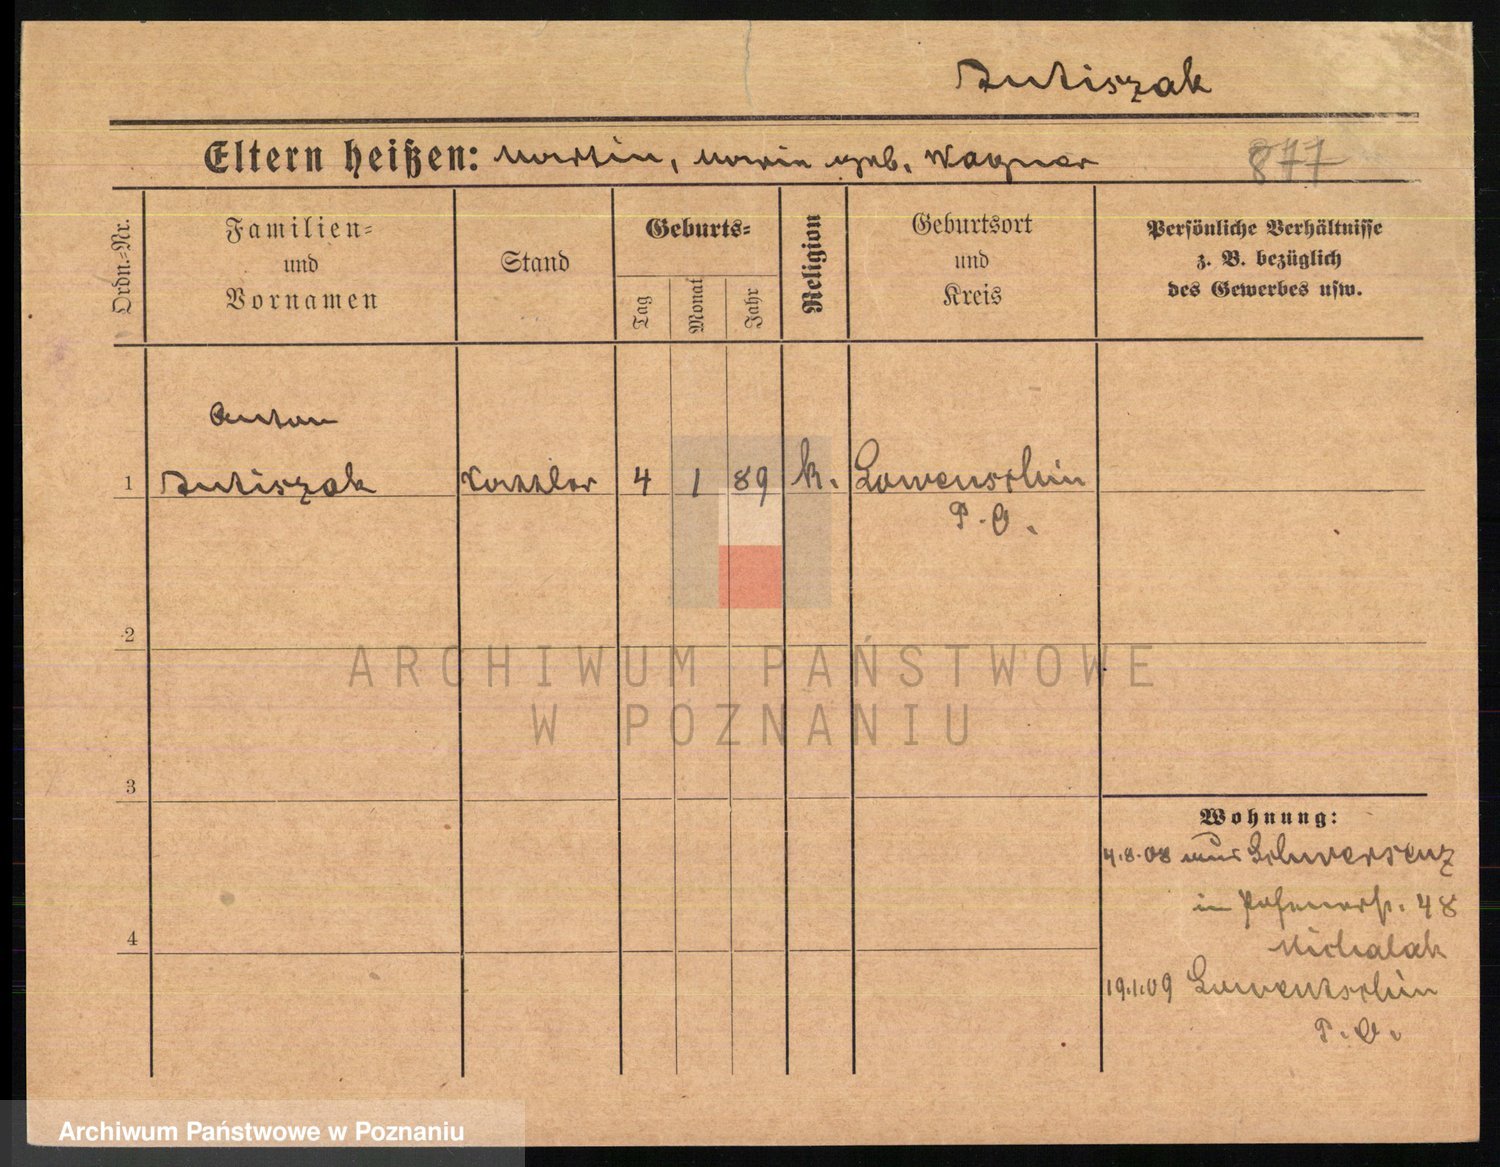 877
Eltern heißen: Martin, Marie geb. Wagner
Ordn.=Nr.
Familien=
und
Vornamen
Stand
Geburts=
Tag
Monat
Jahr
Religion
Geburtsort
und
Kreis
Persönliche Verhältnisse
z. B. bezüglich
des Gewerbes usw.
Anton
1
4 1 89 k.
P. O.
2
3
4
Wohnung:
4.8.08 aus Schwersenz
in Posenerst. 48
Michalak
19.1.09
P. O.
ARCHIWUM PAŃSTWOWE
W POZNANIU
Archiwum Państwowe w Poznaniu